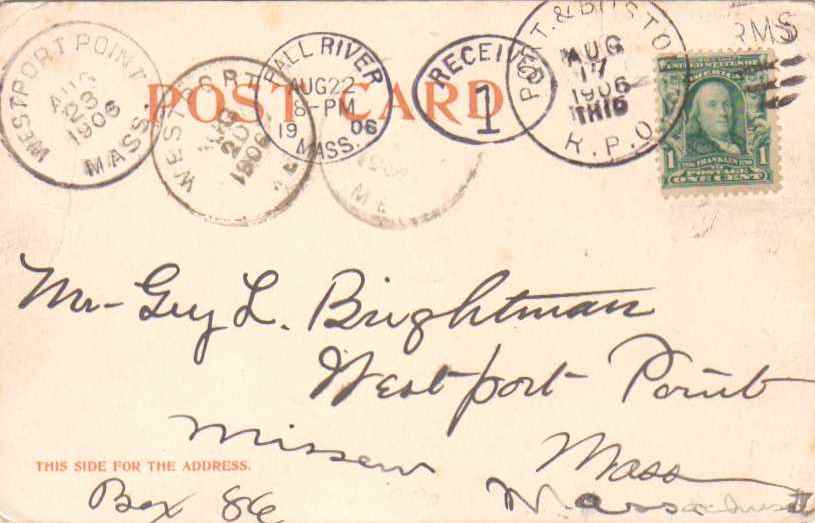 POST CARD
WESTPORT POINT
AUG
23
1906
MASS.
WESTPORT
AUG
20
1906
FALL RIVER
AUG 22
8-PM
19 06
MASS.
RECEIVED
1
PORT. & BOSTON
AUG
17
1906
R.P.O.
RMS
1 FRANKLIN 1
POSTAGE
ONE CENT
Mr- Guy L. Brightman
Westport Point
Missent
Mass
THIS SIDE FOR THE ADDRESS.
Box 86
Massachusett